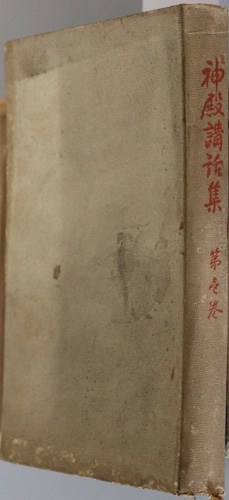 神殿講話集
第壱巻